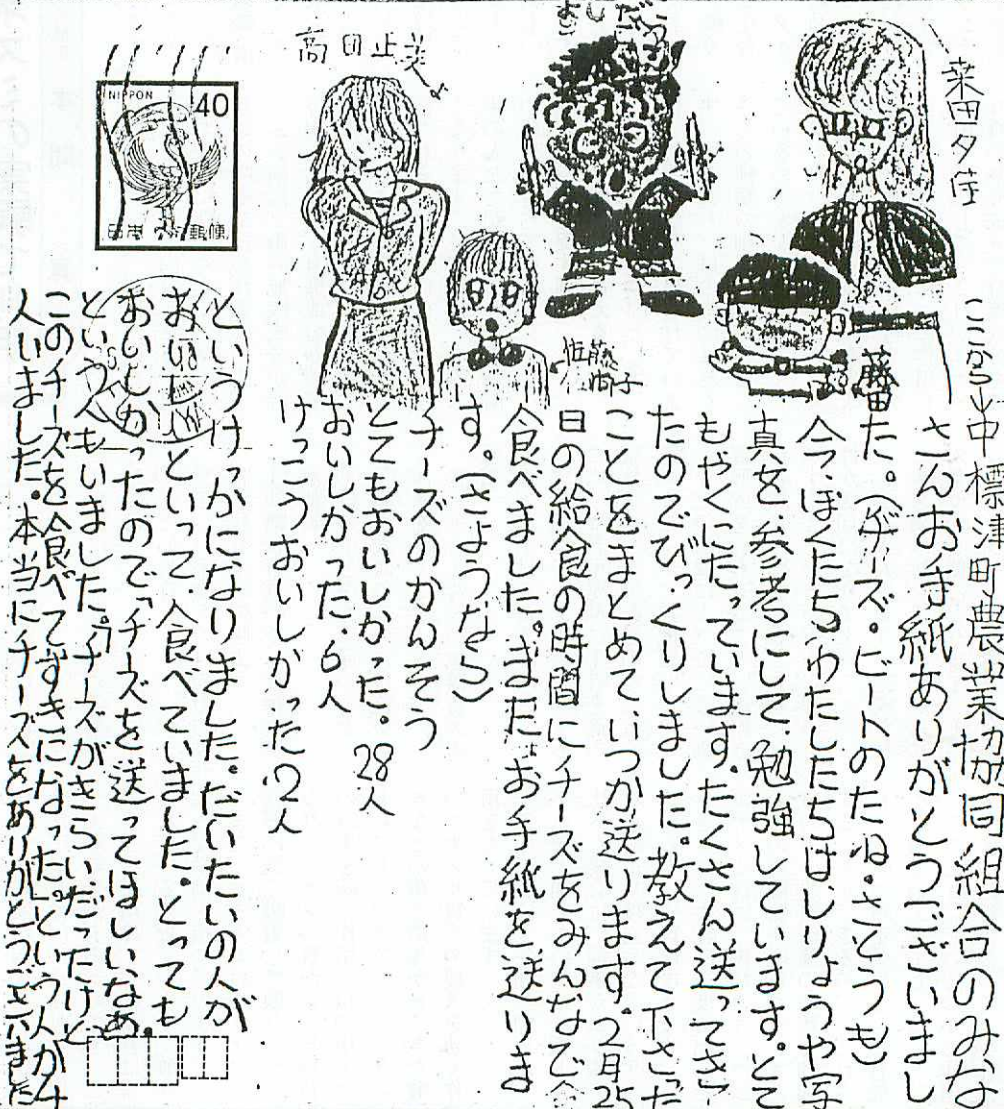 ここから↓中標津町農業協同組合のみな
さんお手紙ありがとうございまし
た。(チーズ。ビートのたね。さとうも)
今、ぼくたちわたしたちは、しりょうや写
真を参考にして、勉強しています。とて
もやくにたっています。たくさん送ってき
たのでびっくりしました。教えて下さった
ことをまとめていつか送ります。2月25
日の給食の時間にチーズをみんなで
食べました。またお手紙を送りま
す。(さようなら)
チーズのかんそう
とてもおいしかった。28人
おいしかった、6人
けっこうおいしかった、2人
というけっかになりました。だいたいの人が
おいしいといって、食べていました。とっても
おいしかったので「チーズを送ってほしいなあ。
という人もいました。「チーズがきらいだったけど
このチーズを食べてすきになった。」という人が4
人いました。本当にチーズをありがとうございました
よしだ
藤田
佐藤
子
NIPPON
40
日本郵便